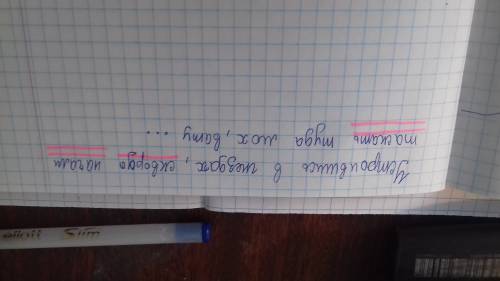 Устроившись в гнездах, скворцы начали
таскать туда мох, вату ...
Slim